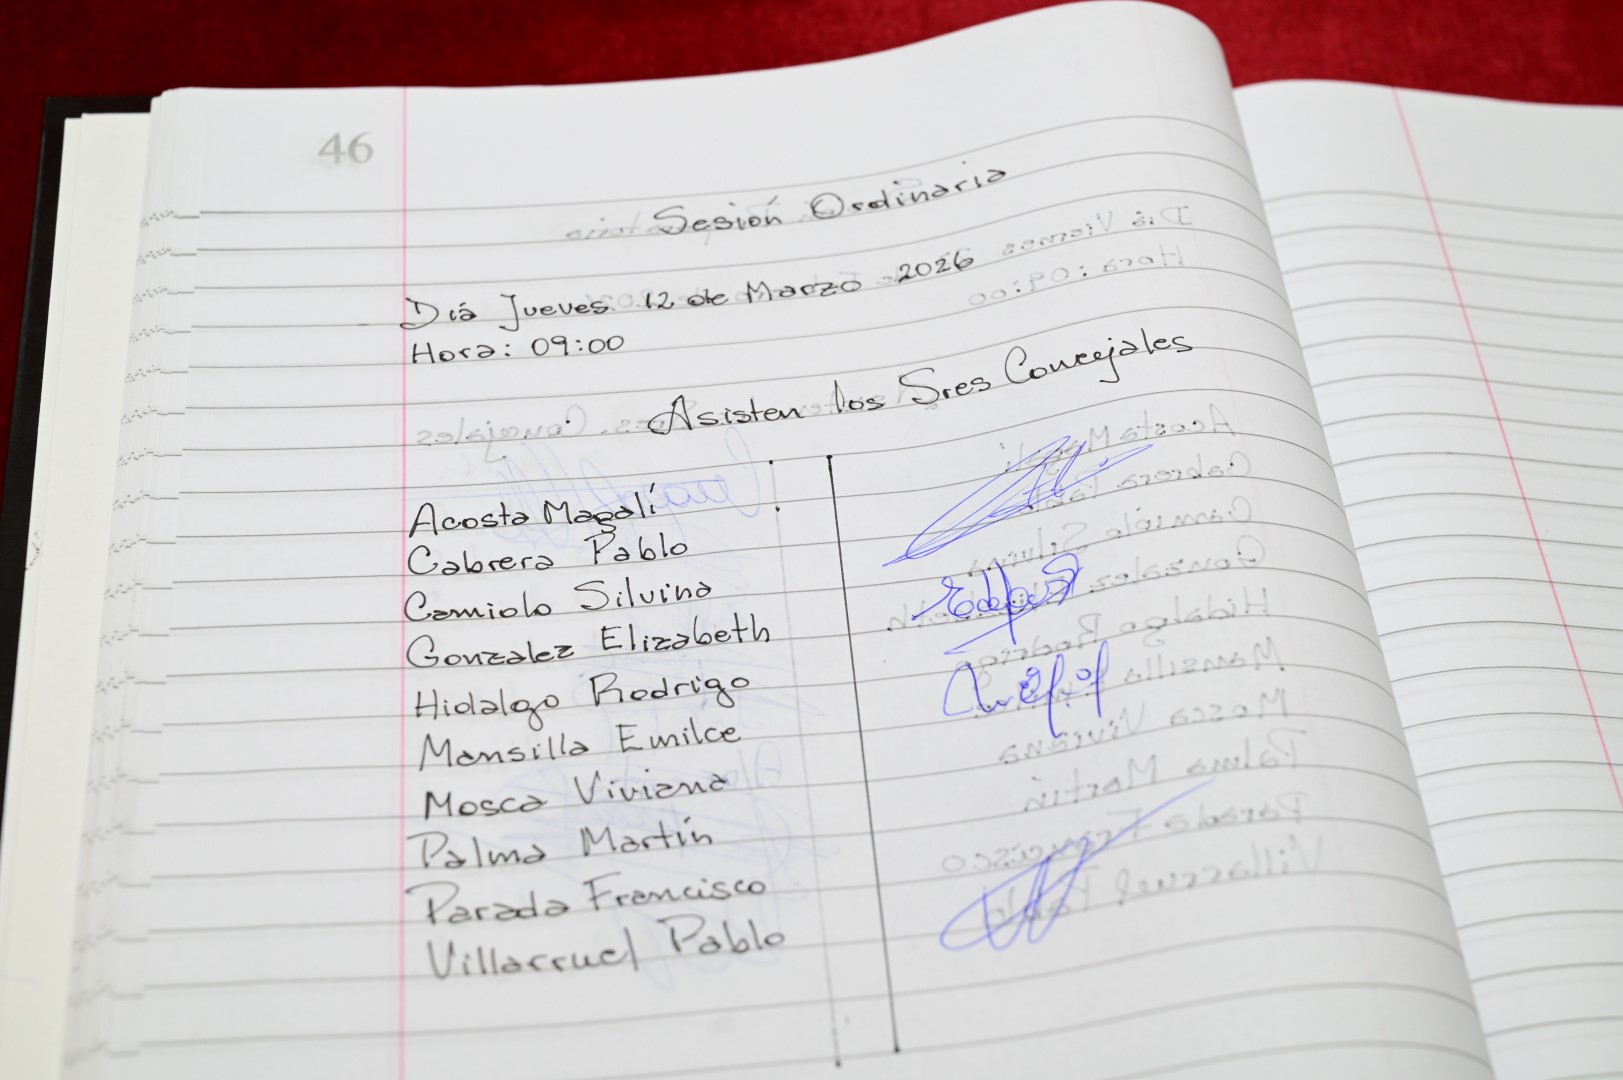 46
Sesión Ordinaria
Diá Jueves 12 de Marzo 2026
Hora: 09:00
Asisten los Sres Concejales
Acosta Magalí
Cabrera Pablo
Camiolo Silvina
Gonzalez Elizabeth
Hidalgo Rodrigo
Mansilla Emilce
Mosca Viviana
Palma Martín
Parada Francisco
Villarruel Pablo